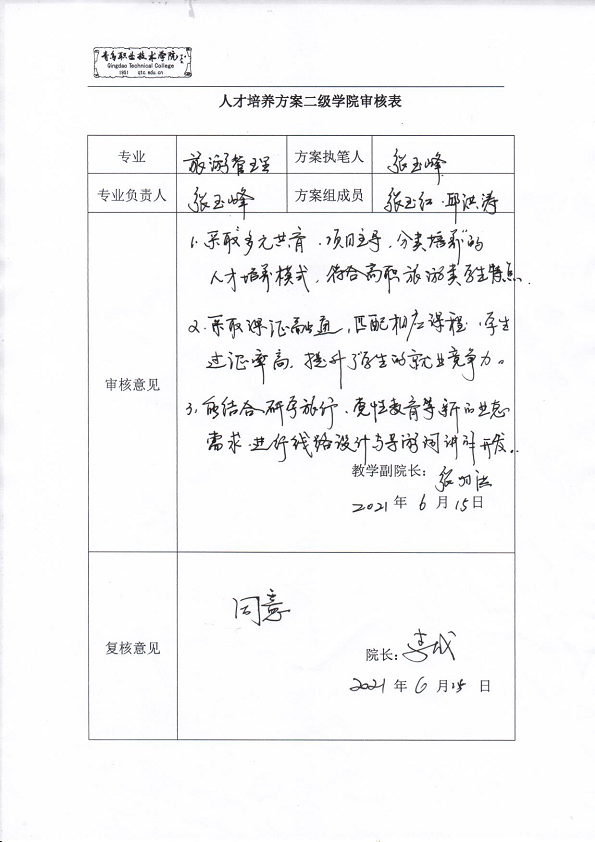 青岛职业技术学院
Qingdao Technical College
1951 qtc.edu.cn
人才培养方案二级学院审核表
专业 旅游管理 方案执笔人 张玉峰
专业负责人 张玉峰 方案组成员 张玉红、邱洪涛
审核意见
1. 采取“多元共育、项目主导、分类培养”的
人才培养模式，符合高职旅游类学生特点.
2. 采取课证融通，匹配相应课程，学生
过证率高，提升了学生的就业竞争力。
3. 能结合研学旅行、 教育等新的业态
需求，进行线路设计与导游词讲解开发。
教学副院长：张
2021 年 6 月 15 日
复核意见
同意
院长：李
2021 年 6 月 15 日